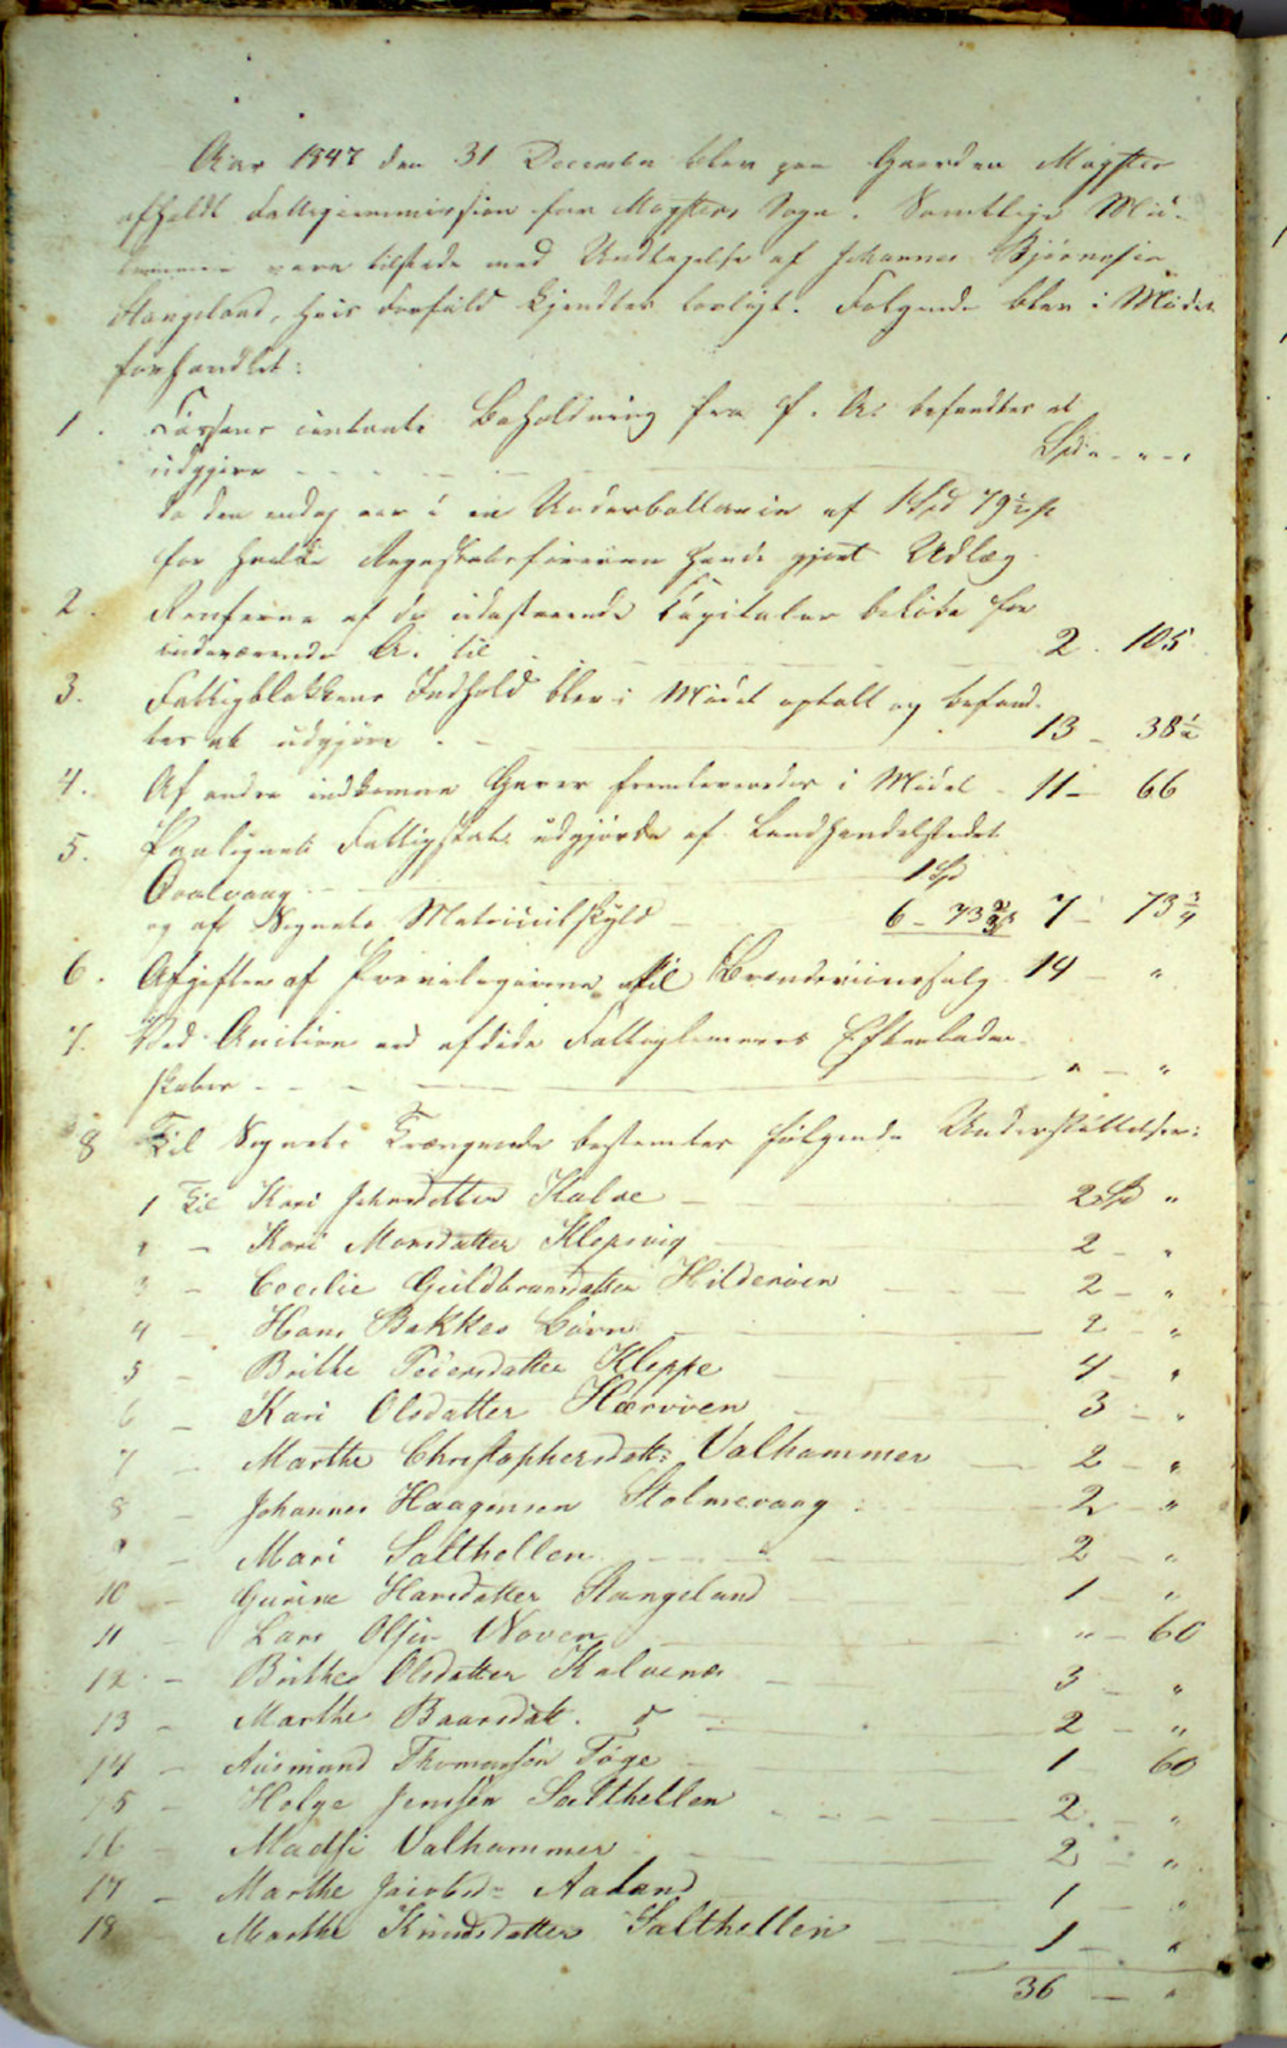 Aar 1847 den 31 December blev paa Gaarden Møgster
afholdt Fattigcommission for Møgsters Sogn. Samtlige Med-
lemmer vare tilstede med Undtagelse af Johannes Bjørnesen
Stangeland, hvis Forfald kjendtes lovligt. Følgende blev i Mødet
forhandlet:
1. Cassens contante Beholdning fra f. A. befandtes at
udgjøre - - - - - Spd " - " - "
da den endog var i en Underballance af 1 Spd 79½ s
for hvilke Regnskabsføreren havde gjort Udlæg.
2. Renterne af de udestaaende Capitaler beløbe for
indeværende A. til - 2. 105
3. Fattigblokkens Indhold blev i Mødet optalt og befand-
tes at udgjøre - 13 - 38½
4. Af andre indkomne Gaver fremleveredes i Mødet - 11 - 66
5. Paalignet Fattigskat udgjørde af Landhandelstedet
Qvalvaag - 1 Spd
og af Sognets Matriculskyld - 6 - 73¾ s 7 - 73¾
6. Afgiften af Previlegierne til Brændeviinssalg 14 - "
7. Ved Auction over afdøde Fattiglemmers Efterladen-
skaber - - - " - "
8 Til Sognets Trængende bestemtes følgende Understøttelser:
1 Til Kari Johnsdatter Kalve - 2 Spd "
2 - Kari Monsdatter Klepsvig 2 - "
3 - Cecilie Guldbrandsdatter Hilderøen - - - 2 - "
4 - Hans Bakkes Børn - 2 - "
5 - Brithe Peiersdatter Kleppe - 4 - "
6 - Kari Olsdatter Hærøven - 3 - "
7 - Marthe Christophersdatt: Valhammer - 2 - "
8 - Johannes Haagensen Stolmevaag - 2 - "
9 - Mari Salthellen - - - 2 - "
10 - Gurine Hansdatter Stangeland - 1 - "
11 - Lars Olsen - " - 60
12 - Brithe Olsdatter Kalvenes - 3 - "
13 - Marthe Baarsdatt. d - 2 - "
14 - Aasmund Thomassøn Føge - 1 60
15 - Helge Jenssen Salthellen - - - 2 - "
16 - Madsi Valhammer - 2 - "
17 - Marthe Jacobsd= Aadland 1 - "
18 - Marthe Knudsdatter Salthellen - 1 - "
36 - "